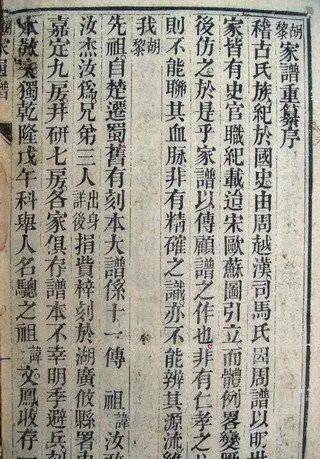 胡黎家譜重纂序
稽古氏族紀於國史由周越漢司馬氏因周譜以明世
家皆有史官職紀載迨宋歐蘇圖引立而體例畧變厥
後仿之於是乎家譜以傳顧譜之作也非有仁孝之
則不能聯其血脉非有精確之識亦不能辨其源流
胡黎我
先祖自楚遷蜀舊有刻本大譜係十一傳祖諱汝
汝杰汝爲兄弟三人出身詳後捐費梓刻於湖廣縣署
嘉定九房井研七房各家俱存譜本不幸明季避兵
本獨乾隆戊午科舉人名驄之祖諱文鳳存一
家譜